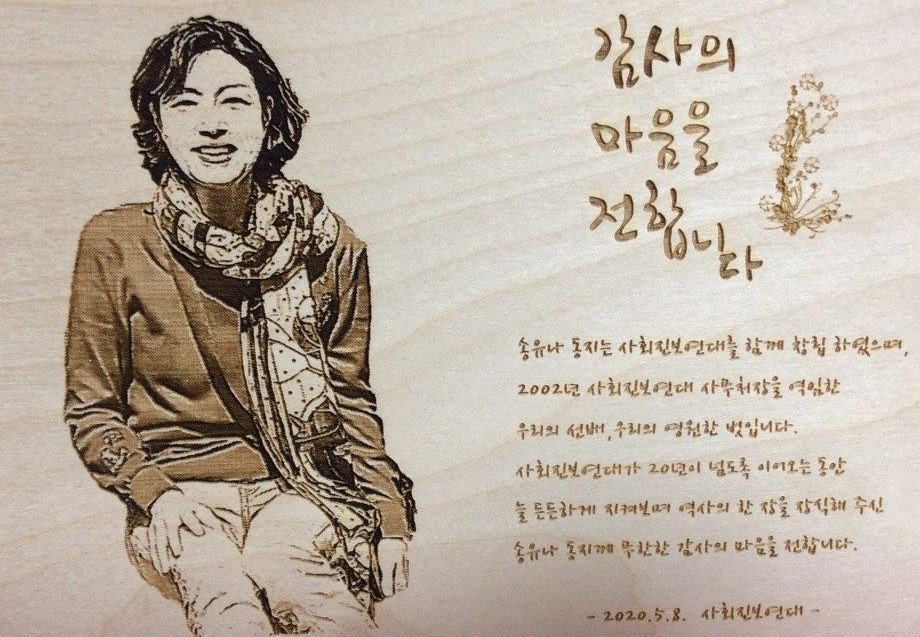 감사의
마음을
전합니다
송유나 동지는 사회진보연대를 함께 창립 하였으며,
2002년 사회진보연대 사무처장을 역임한
우리의 선배, 우리의 영원한 벗입니다.
사회진보연대가 20년이 넘도록 이어오는 동안
늘 든든하게 지켜보며 역사의 한 장을 장식해 주신
송유나 동지께 무한한 감사의 마음을 전합니다.
- 2020.5.8. 사회진보연대 -